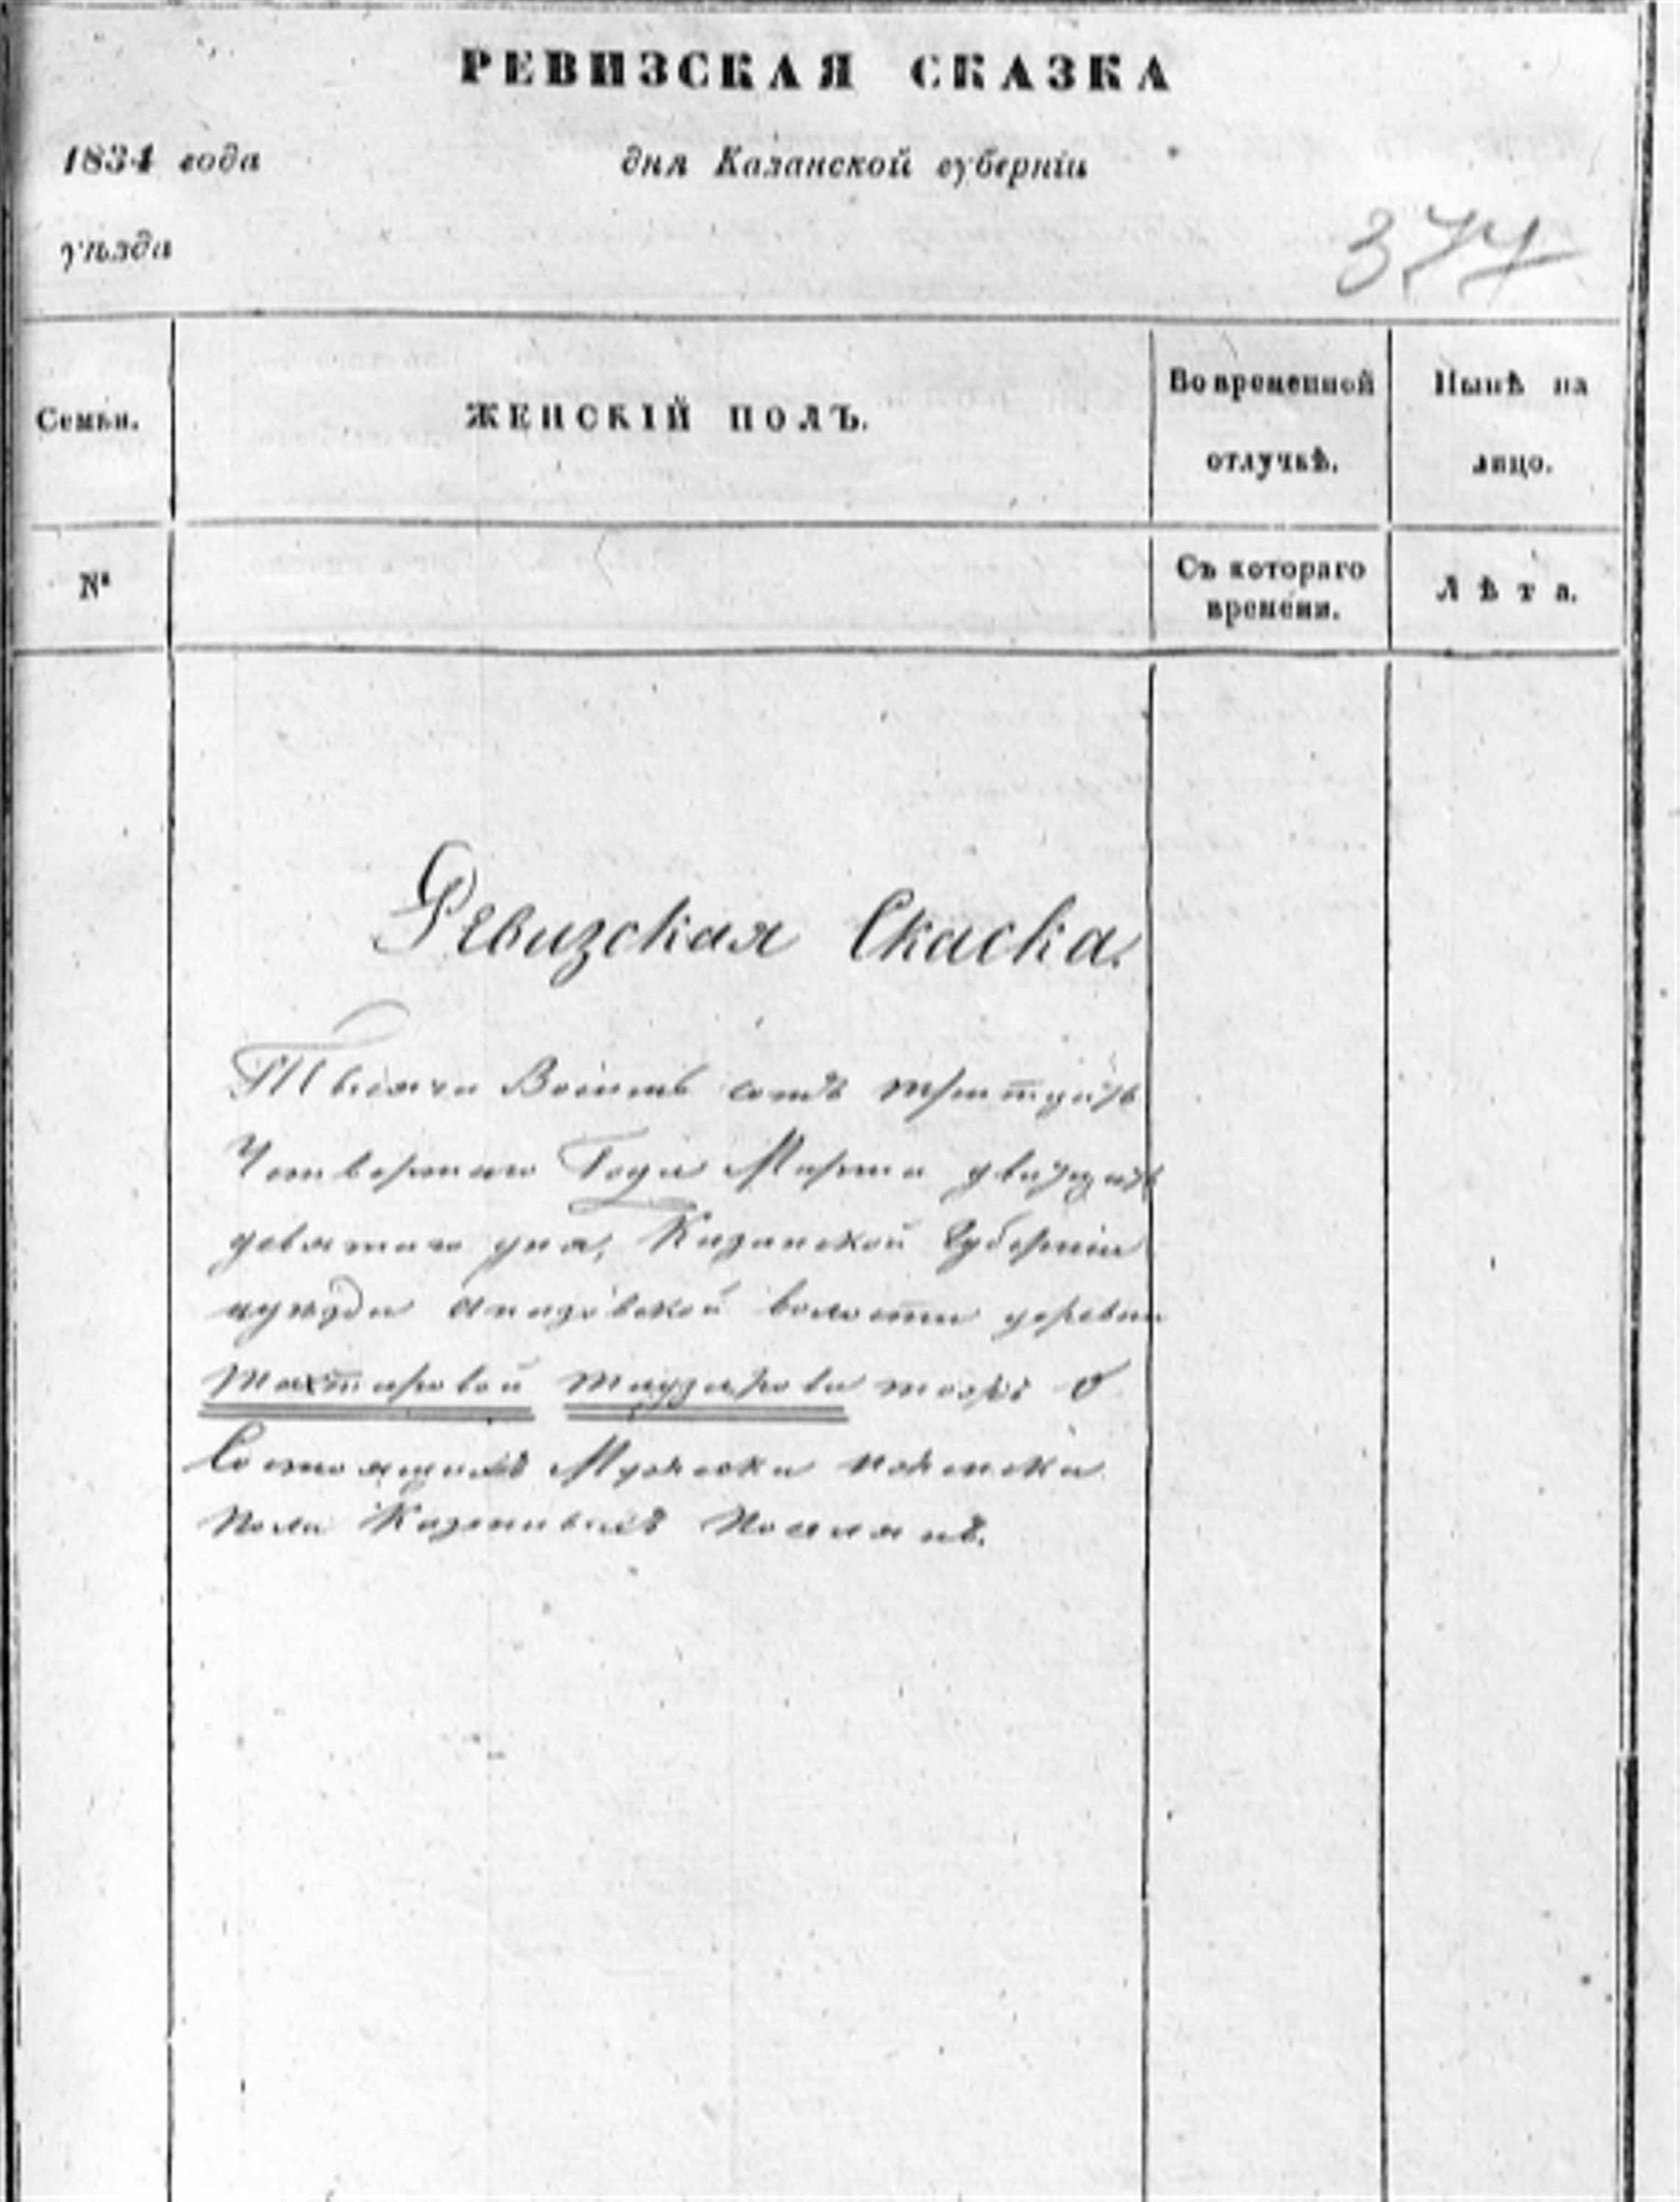 РЕВИЗСКАЯ СКАЗКА
1834 года дня Казанской губерніи
уѣзда
377
Семьи. ЖЕНСКІЙ ПОЛЪ. Во временной отлучкѣ. Нынѣ на лицо.
№ Съ котораго времени. Лѣта.
Ревизская Скаска.
Тысяча Восемь сотъ тритцать
Четвертаго Года Марта двадцать
девятаго дня, Казанской Губерніи
иуѣзда волости деревни
тожъ О
Состоящихъ Мужска иженска
пола Казенныхъ Поселянъ.